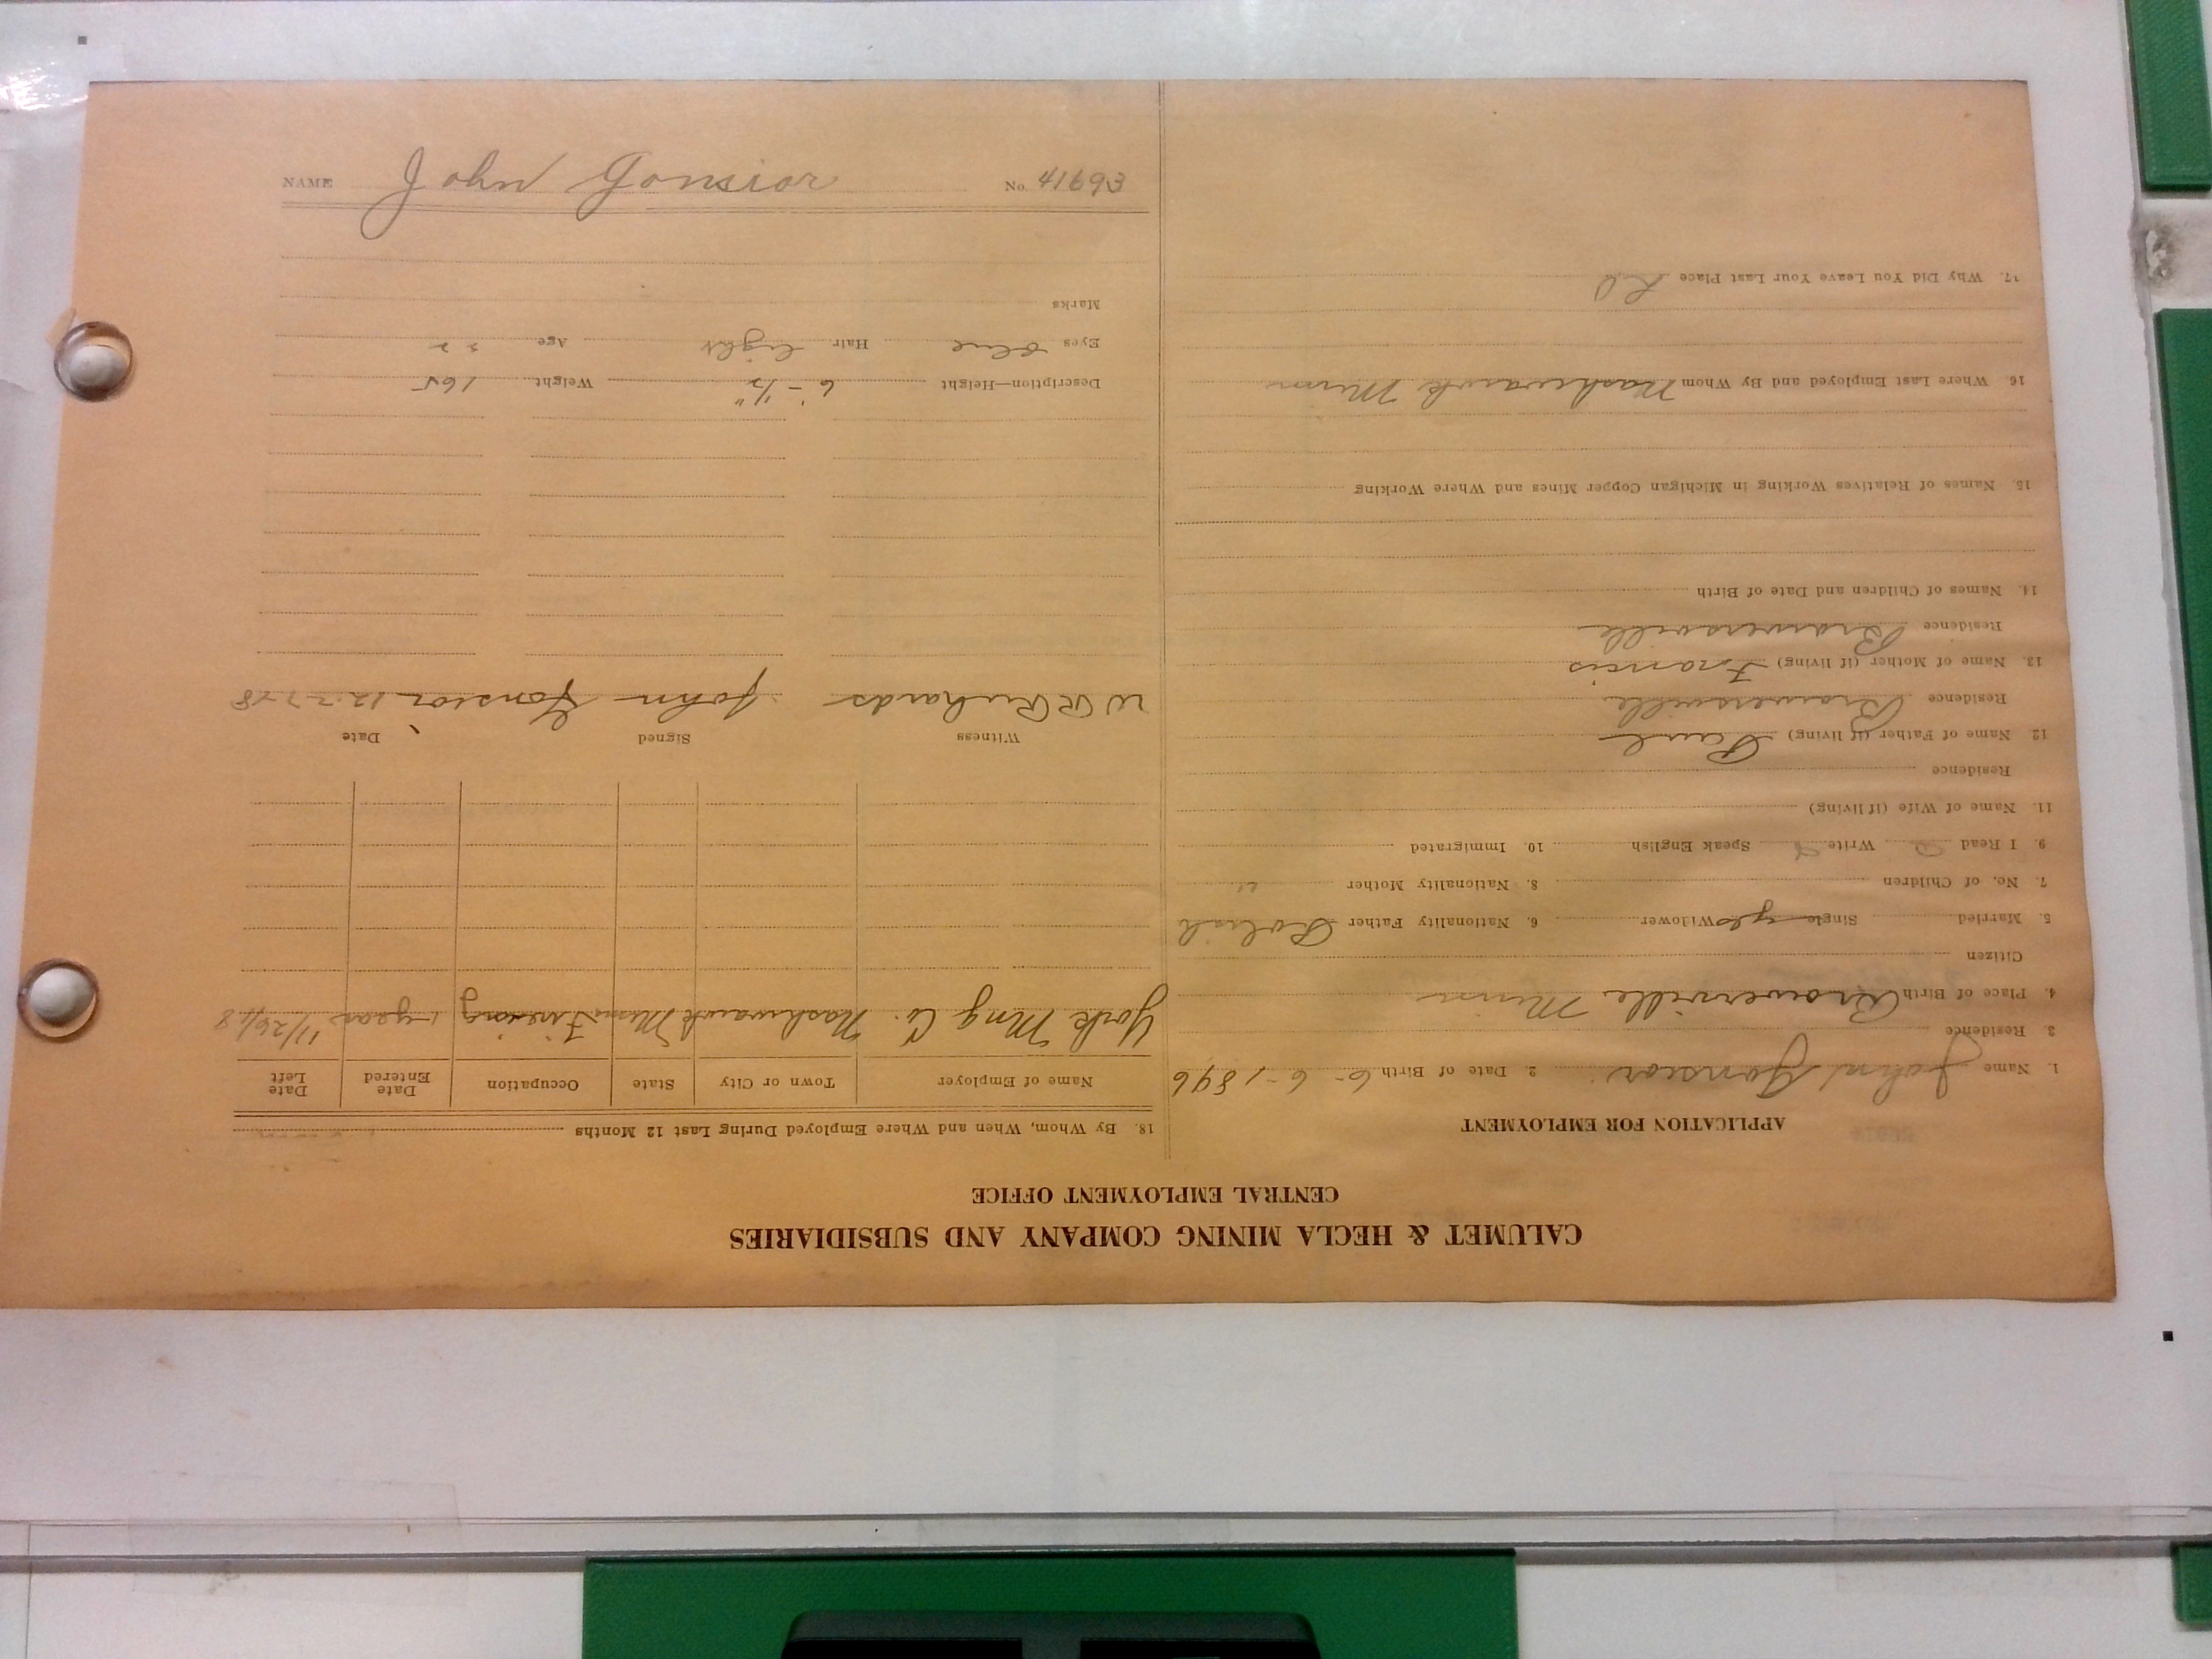 CALUMET & HECLA MINING COMPANY AND SUBSIDIARIES
CENTRAL EMPLOYMENT OFFICE
APPLICATION FOR EMPLOYMENT
1. Name John Gonsior 2. Date of Birth 6-6-1896
3. Residence
4. Place of Birth Browerville Minn
Citizen
5. Married Single yes Widower 6. Nationality Father Polish
7. No. of Children 8. Nationality Mother "
9. I Read Write Speak English 10. Immigrated
11. Name of Wife (if living)
Residence
12. Name of Father (if living) Paul
Residence Browersville
13. Name of Mother (if living) Francis
Residence Browersville
14. Names of Children and Date of Birth
15. Names of Relatives Working in Michigan Copper Mines and Where Working
16. Where Last Employed and By Whom Nashwauk Minn
17. Why Did You Leave Your Last Place
18. By Whom, When and Where Employed During Last 12 Months
Name of Employer Town or City State Occupation Date Entered Date Left
York Mng Co. Nashwauk Minn Fireing 1 year 11/26/18
Witness Signed Date
W R Richards John Gonsior 12-27-18
Description—Height 6'-1/2" Weight 165
Eyes blue Hair light Age 22
Marks
NAME John Gonsior No. 41693